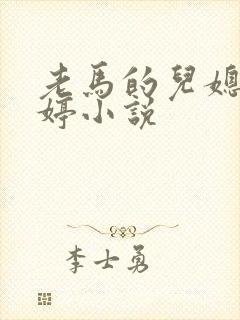 老馬的兒媳
婷小説
李士勇